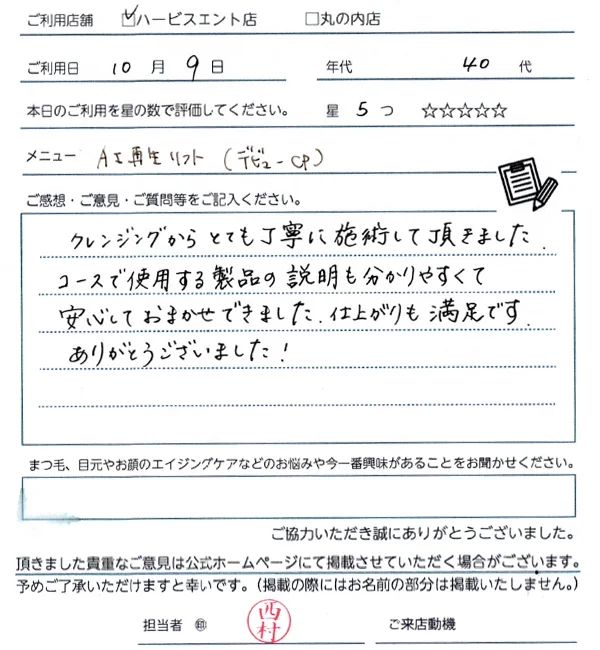 ご利用店舗 ☑ハービスエント店 □丸の内店
ご利用日 10 月 9 日 年代 40 代
本日のご利用を星の数で評価してください。 星 5 つ ☆☆☆☆☆
メニュー AI再生リフト (デビューCP)
ご感想・ご意見・ご質問等をご記入ください。
クレンジングから とても丁寧に施術して頂きました.
コースで使用する製品の説明も分かりやすくて
安心しておまかせできました.仕上がりも満足です.
ありがとうございました!
まつ毛、目元やお顔のエイジングケアなどのお悩みや今一番興味があることをお聞かせください。
ご協力いただき誠にありがとうございました。
頂きました貴重なご意見は公式ホームページにて掲載させていただく場合がございます。
予めご了承いただけますと幸いです。(掲載の際にはお名前の部分は掲載いたしません。)
担当者 ㊞ 西村 ご来店動機